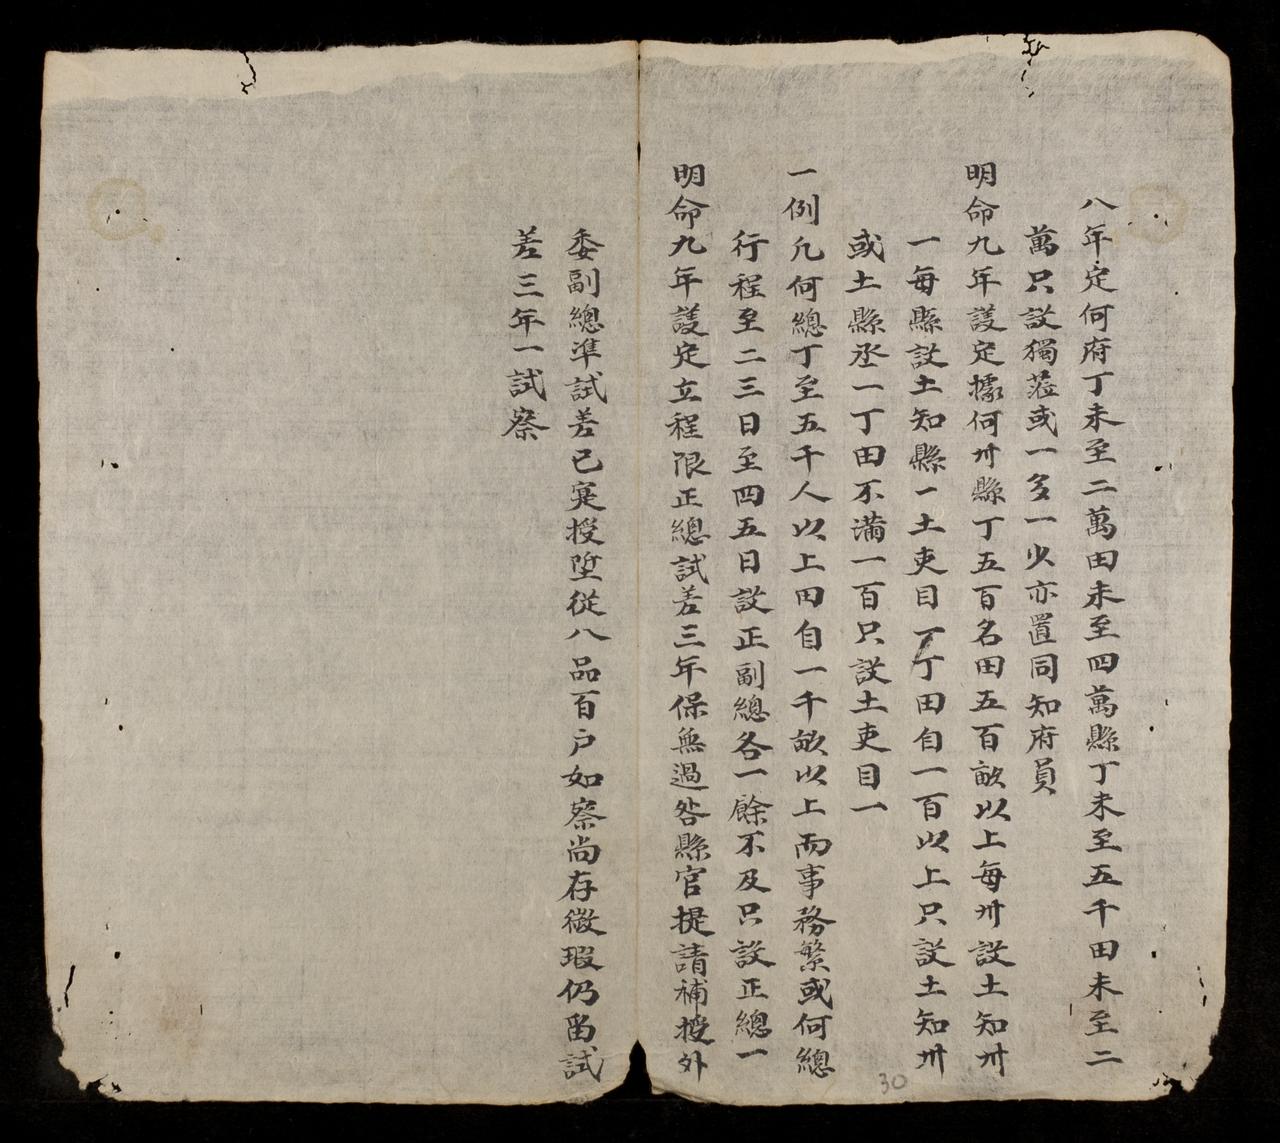 八年定何府丁未至二萬田未至四萬縣丁未至五千田未至二
萬只設獨蒞或一多一少亦置同知府員
明命九年議定據何州縣丁五百名田五百畝以上每州設土知州
一每縣設土知縣一土吏目一丁田自一百以上只設土知州
或土縣丞一丁田不滿一百只設土吏目一
一例凢何總丁至五千人以上田自一千畝以上而事務繁或何總
行程至二三日至四五日設正副總各一餘不及只設正總一
明命九年議定立程限正總試差三年保無過咎縣官提請補授外
委副總準試差已寔授陞從八品百户如察尚存微瑕仍畄試
差三年一試察
30